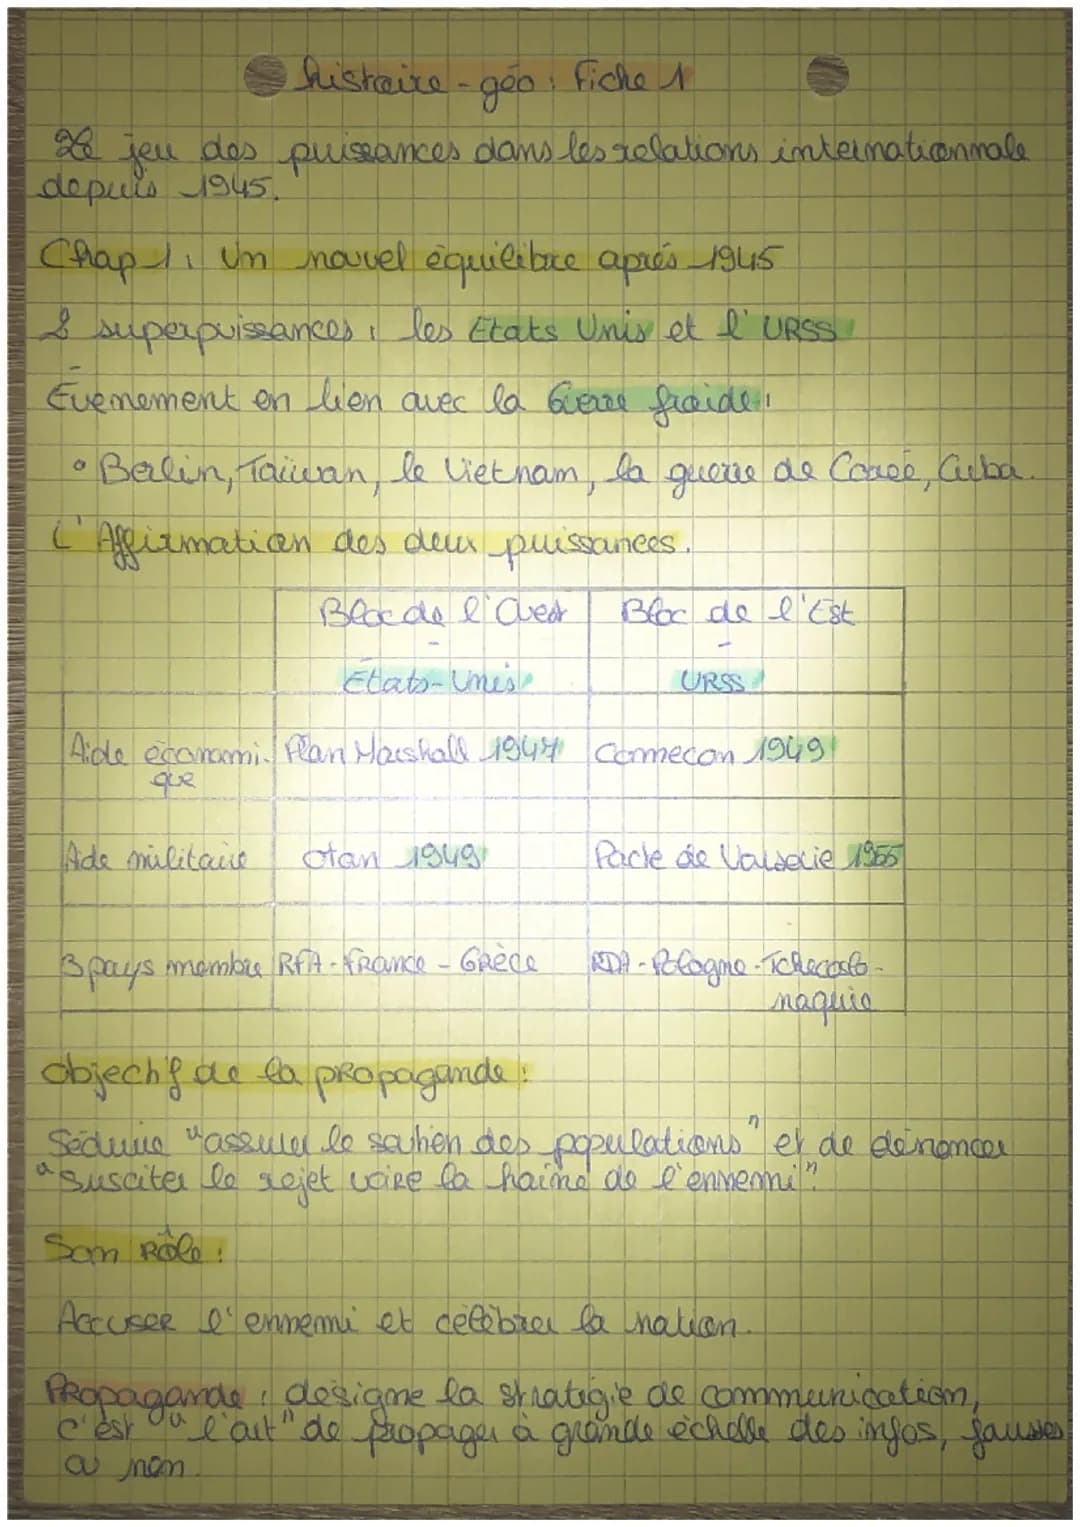 histoire-géo : Fiche 1
Le jeu des puissances dans les relations internationnale
depuis 1945.
Chap 1 : Un nouvel équilibre après 1945
2 superpuissances : les Etats Unis et l'URSS
Évenement en lien avec la Gerre froide :
• Berlin, Taïwan, le Vietnam, la guerre de Corée, Cuba.
L'Affirmation des deux puissances.
Bloc de l'Ouest Bloc de l'Est
- -
États-Unis URSS
Aide économi- Plan Marshall 1947 Comecon 1949
que
Aide militaire Otan 1949 Pacte de Varsovie 1955
3 pays membre RFA - France - Grèce RDA - Pologne - Tchecoslo-
naquie
Objectif de la propagande :
Séduire "assurer le soutien des populations" et de dénoncer
"susciter le rejet voire la haine de l'ennemi".
Son Rôle :
Accuser l'ennemi et célébrer la nation.
Propagande : désigne la stratégie de communication,
c'est "l'art" de propager à grande échelle des infos, fausses
ou non.